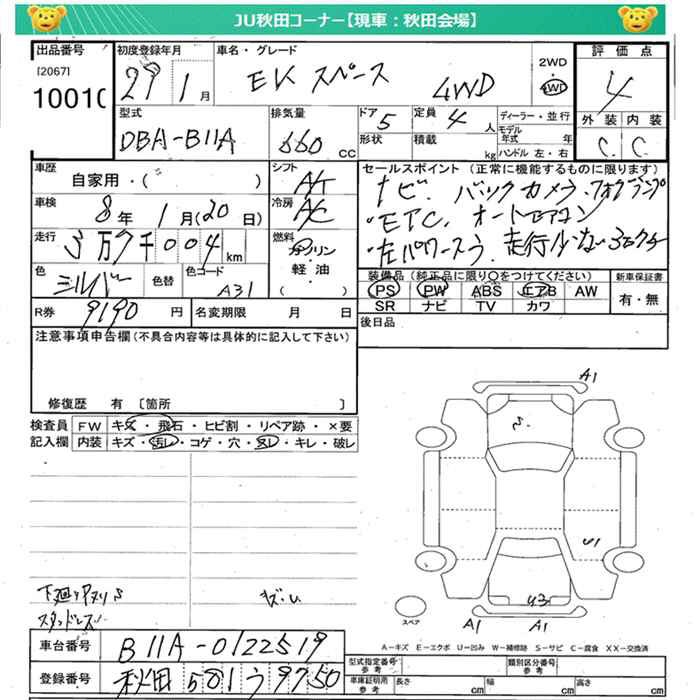 JU秋田コーナー【現車：秋田会場】
出品番号 初度登録年月 車名・グレード 2WD 評価点
[2067] 29 1月 EK スペース 4WD 4WD 4
1001
型式 排気量 ドア 5 定員 4人 ディーラー・並行 外装 内装
DBA-B11A 660cc 形状 積載 kg モデル年式 年 C C
ハンドル 左・右
車歴 自家用・( ) シフト AT セールスポイント (正常に機能するものに限ります)
車検 8年 1月(20日) 冷房 AC ナビ. バックカメラ.フォグランプ
・ETC. オートエアコン
走行 3万7千004km 燃料 ガソリン・軽油・( ) ・左パワースラ. 走行少ない
色 シルバー 色替 色コード A31
装備品(純正品に限り○をつけてください) 新車保証書
PS PW ABS エアB AW 有・無
SR ナビ TV カワ
R券 9190円 名変期限 月 日 後日品
注意事項申告欄(不具合内容等は具体的に記入して下さい)
修復歴 有 〔箇所 〕
検査員 FW キズ・飛石・ヒビ割・リペア跡・×要
記入欄 内装 キズ・汚レ・コゲ・穴・スレ・キレ・破レ
A1
U1
U3
A1 A1
スペア
下廻り
スタッドレス
A－キズ E－エクボ U－凹み W－補修跡 S－サビ C－腐食 XX－交換済
車台番号 B11A-0122519
登録番号 秋田 581 う 9750
型式指定番号 参考 類別区分番号 参考
車庫証明用 参考 長さ cm 幅 cm 高さ cm